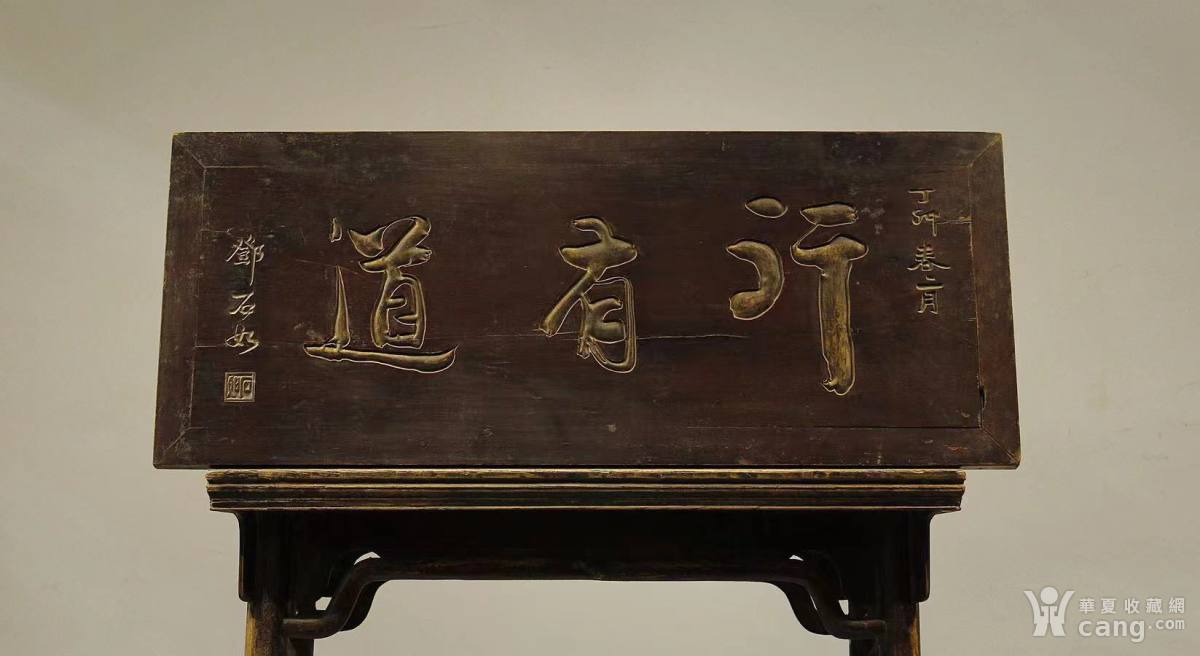 丁卯春二月
行有道
鄧石如
華夏收藏網
cang.com